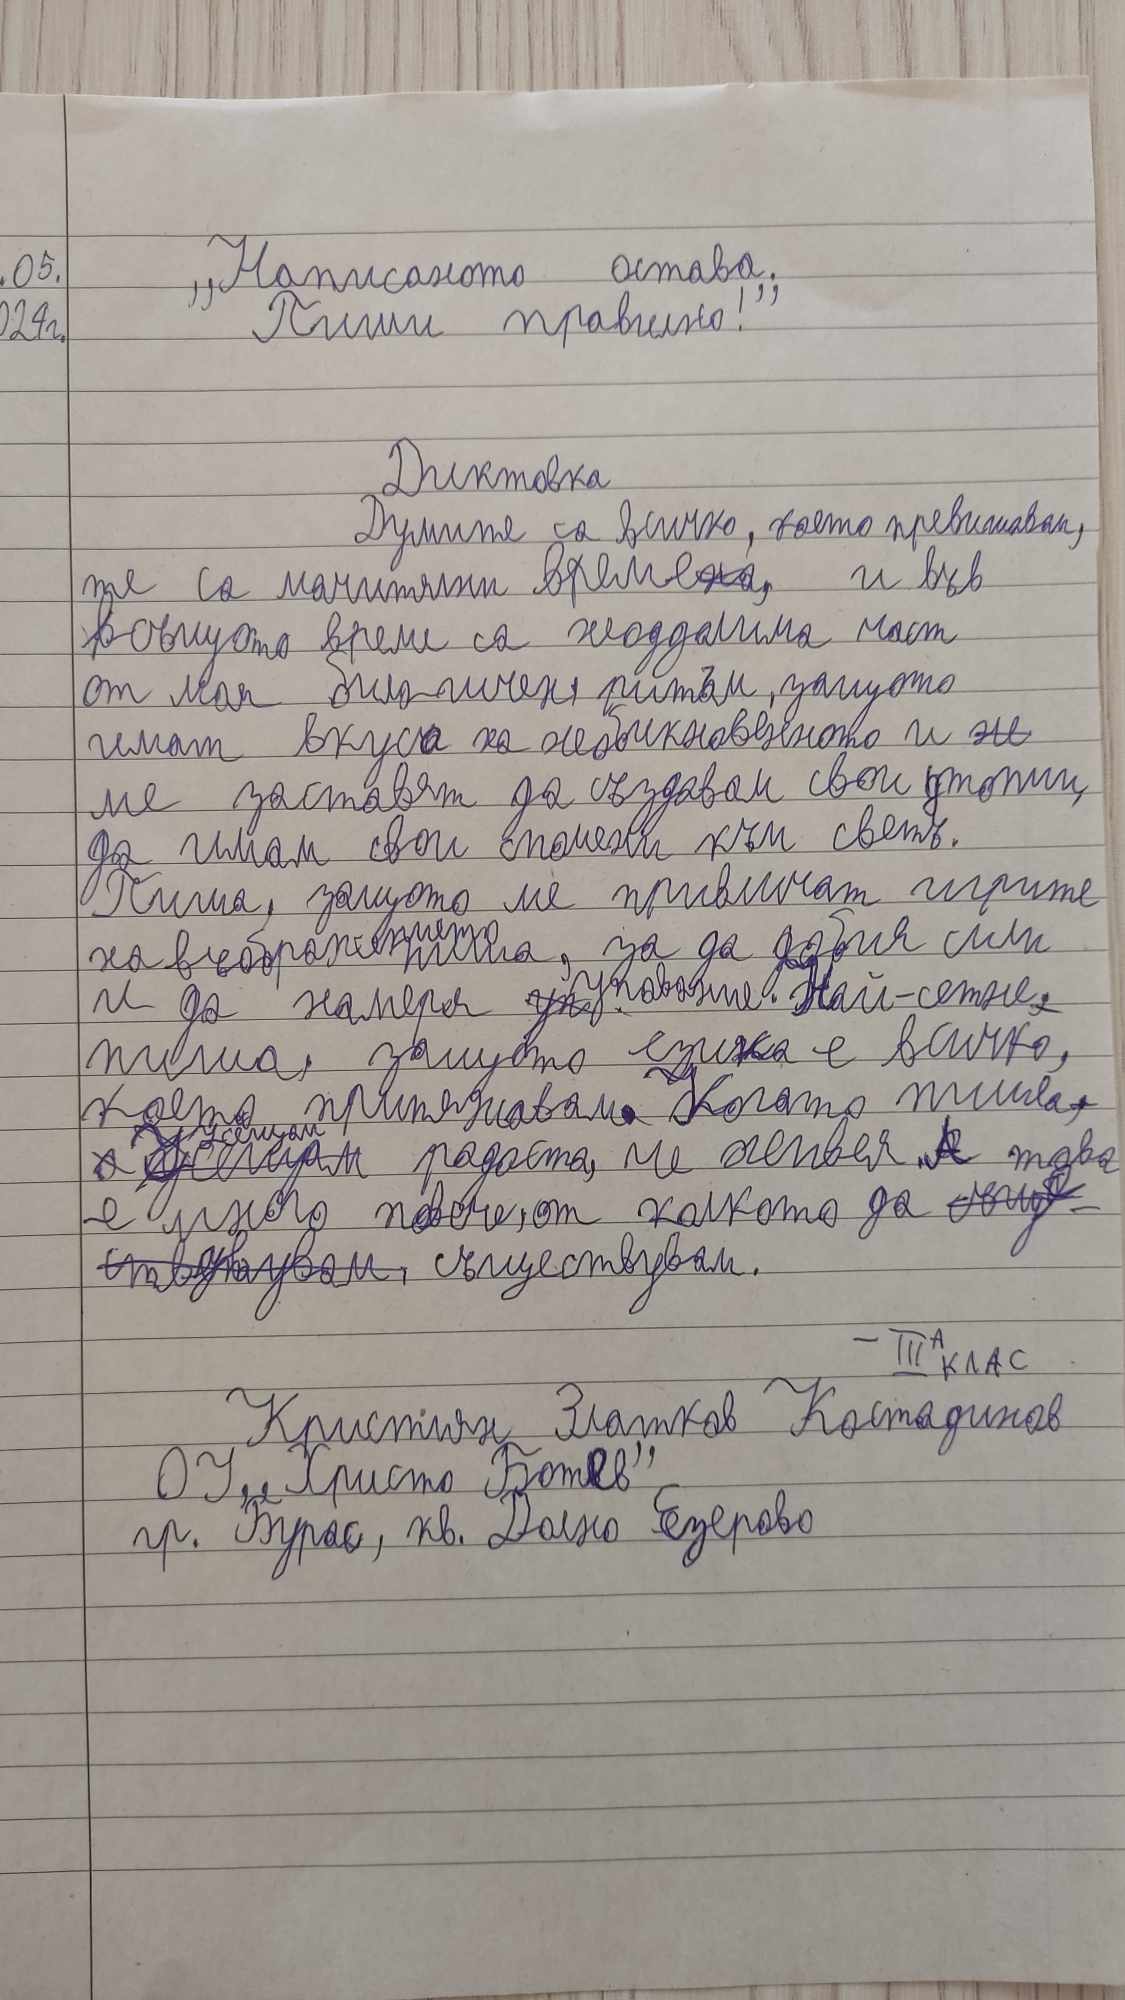 .05.
024г.
„Написаното остава.
Пиши правилно!”
Диктовка
Думите са всичко, което превишавам,
те са мачитялни времена, и във
същуто време са неоддалима част
от моя било-ичен, ритъм, защото
имат вкуса на необикновеното и не
ме заставят да създавам свои утопии,
да имам свои спомени към светъ.
Пиша, защото ме привличат игрите
на въображението
пиша, за да добия сили
и да намеря упование. Най-сетне,
пиша, защото езика е всичко,
което притяжавам. Когато пиша,
усещам радоста, че живея. А това
е много повече, от колкото да
съществувам.
– III А КЛАС
Кристиян Златков Костадинов
ОУ „Христо Ботев”
гр. Бургас, кв. Долно Езерово